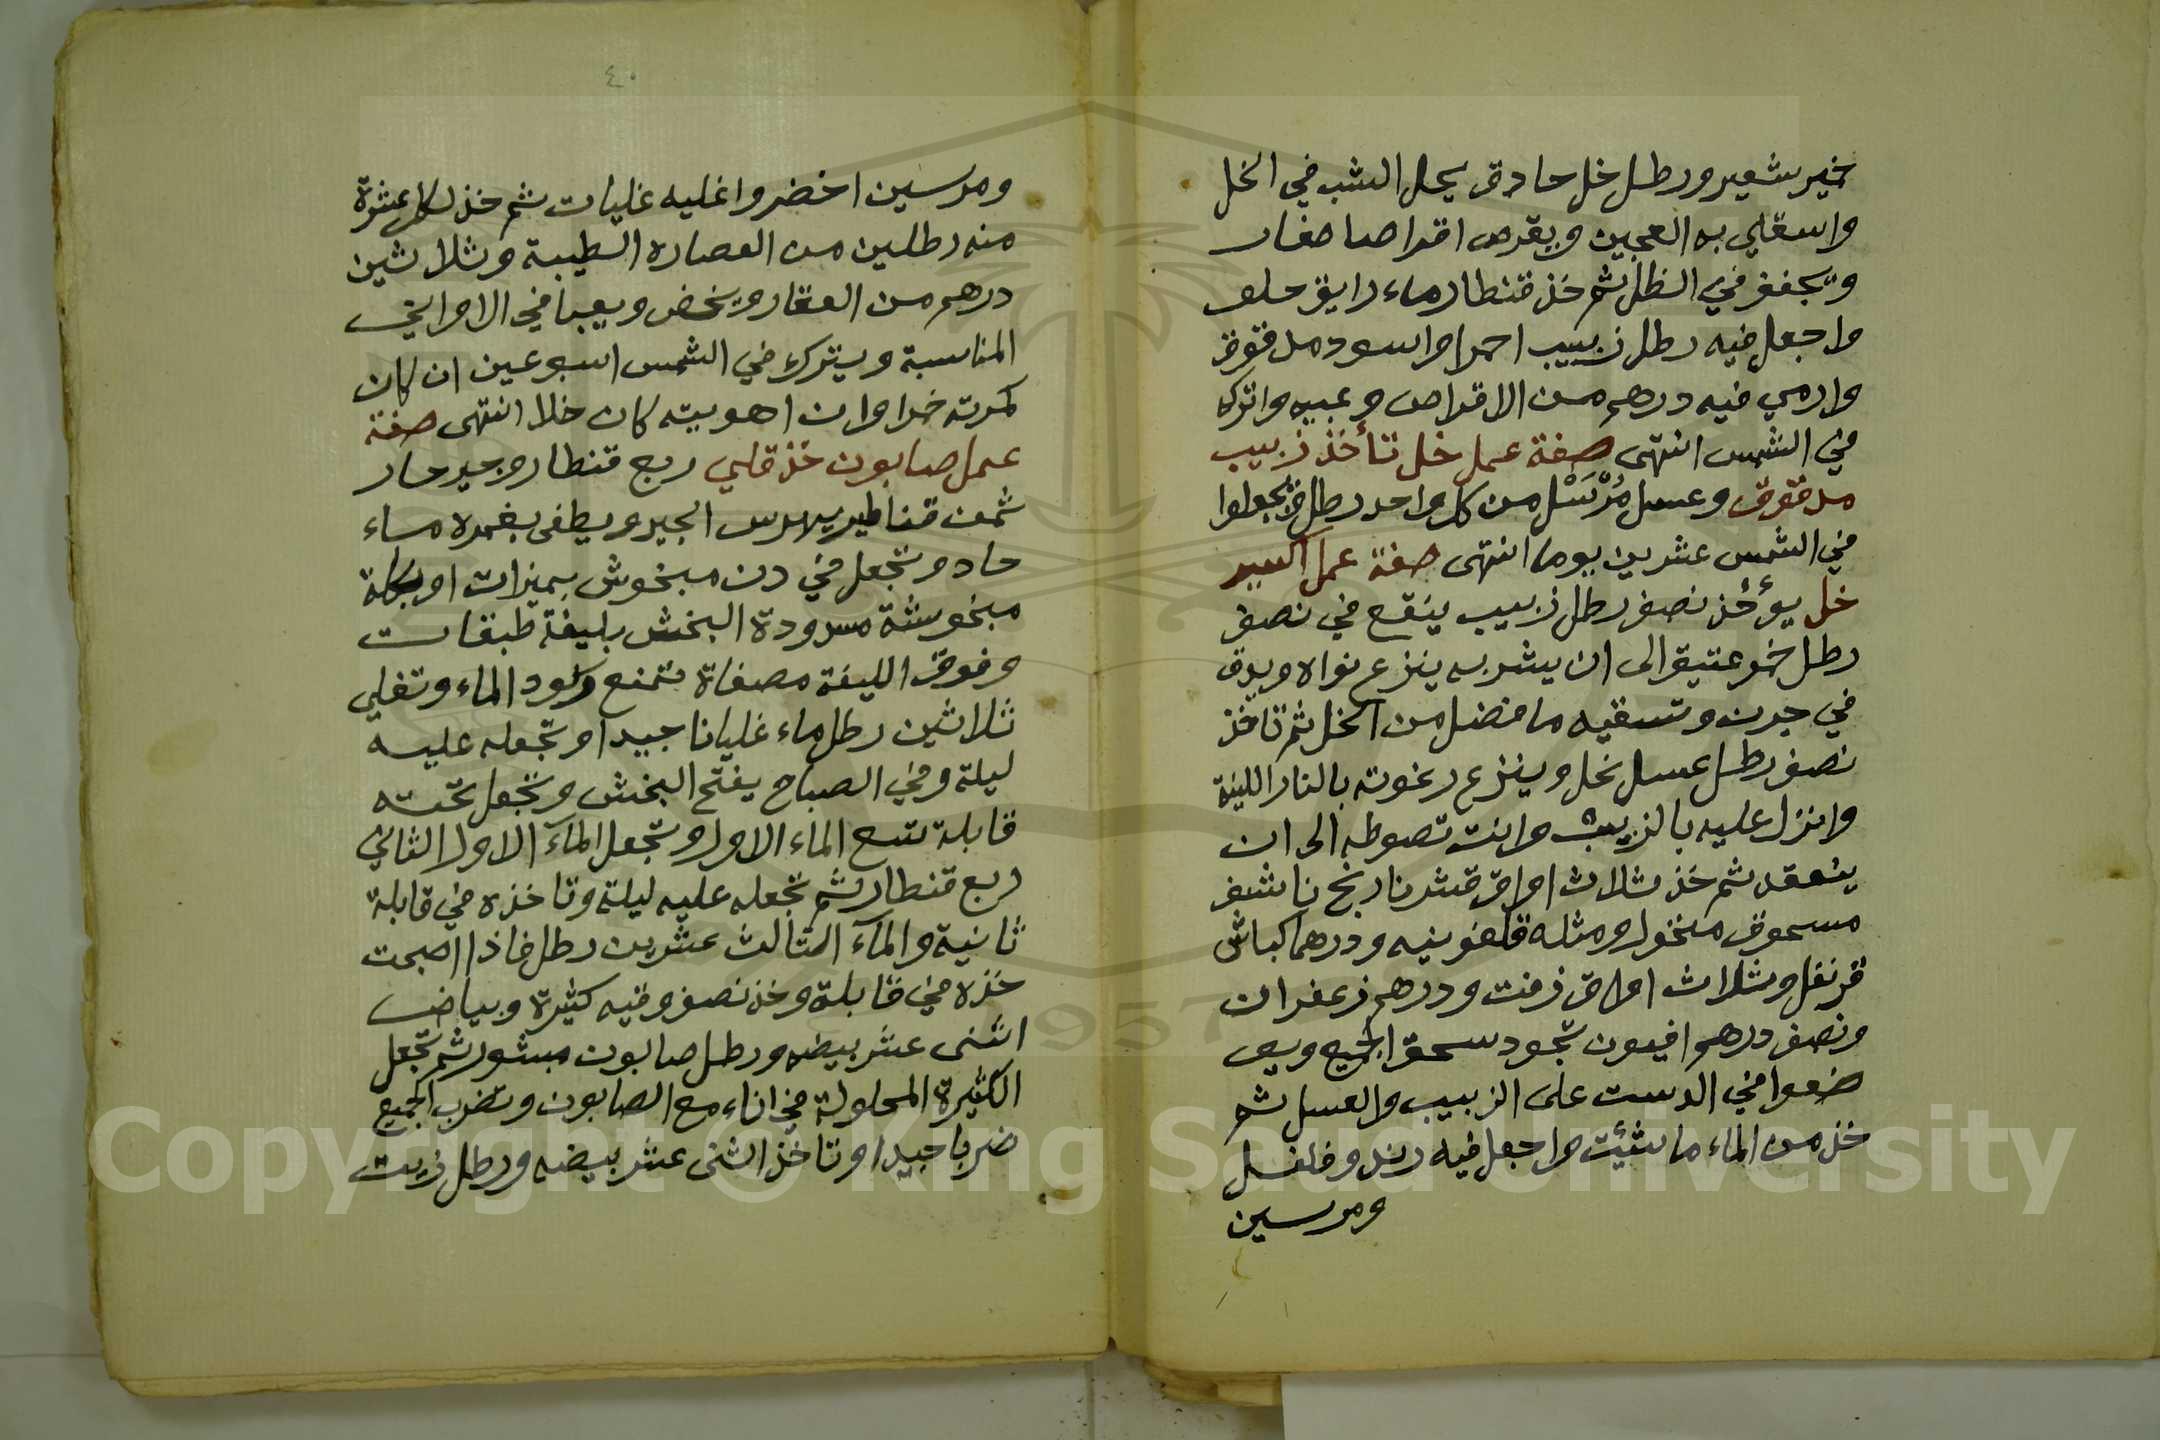 خمير شعير ورطل خل حادق يحل الشب في الخل
واسقلي به العجين ويقرص اقراصا صغار
ويجفف في الظل ثم خذ قنطار ماء رايق حلو
واجعل فيه رطل زبيب احمر او اسود مدقوق
وارمي فيه درهم من الاقراص وعبيه واتركه
في الشمس انتهى صفة عمل خل تأخذ زبيب
مدقوق وعسل مُرْسَل من كل واحد رطل ويجعلوا
في الشمس عشرين يوما انتهى صفة عمل اكسير
خل يؤخذ نصف رطل زبيب ينقع في نصف
رطل خمر عتيق الى ان يشربه ينزع نواه ويدق
في جرن وتسقيه ما فضل من الخل ثم تاخذ
نصف رطل عسل نحل وينزع رغوته بالنار اللينة
وانزل عليه بالزبيب وانت تصوطه الى ان
ينعقد ثم خذ ثلاث اواق قشر نارنج ناشف
مسحوق منخول ومثله قلفونيه ودرهم كباش
قرنفل وثلاث اواق زفت ودرهم زعفران
ونصف درهم افيون تجود سحق الجميع ويـ
ضعوا في الدست على الزبيب والعسل ثم
خذ من الماء ما شئت واجعل فيه رند وفلفل
ومرسين
٤٠
ومرسين اخضر واغليه غليات ثم خذ لكل عشرة
منه رطلين من العصاره الطيبة وثلاثين
درهم من العقار ويخض ويعبا في الاواني
المناسبة ويترك في الشمس اسبوعين ان كان
كمرته خمرا وان اهويته كان خلا انتهى صفة
عمل صابون خذ قلي ربع قنطار وجير حار
ثمن قناطير يهرس الجير ويطفى بغمره ماء
حاد وتجعل في دن مبخوش بميزات او بكلة
مبخوشة مسدودة البخش بليفة طبقات
وفوق الليفة مصفاة تمنع ركود الماء وتغلي
ثلاثين رطل ماء غليانا جيدا وتجعله عليه
ليلة وفي الصباح يفتح البخش وتجعل تحته
قابلة تسع الماء الاول وتجعل المآء الاول الثاني
ربع قنطار ثم تجعله عليه ليلة وتاخذه في قابلة
ثانية والمآء الثالث عشرين رطل فاذا اصبحت
خذه في قابلة وخذ نصف وقيه كثيرة وبياض
اثنى عشر بيضه ورطل صابون مبشور ثم تجعل
الكثيرة المحلولة في اناء مع الصابون وتضرب الجميع
ضربا جيدا وتاخذ اثنى عشر بيضه ورطل زيت
Copyright © King Saud University
1957